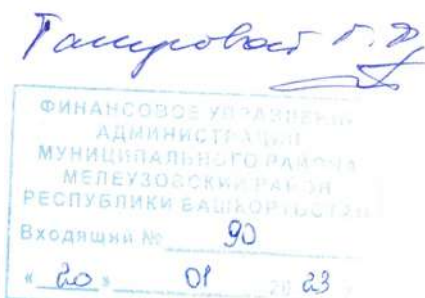 Тагировой Г. Я.
ФИНАНСОВОЕ УПРАВЛЕНИЕ
АДМИНИСТРАЦИИ
МУНИЦИПАЛЬНОГО РАЙОНА
МЕЛЕУЗОВСКИЙ РАЙОН
РЕСПУБЛИКИ БАШКОРТОСТАН
Входящий № 90
« 20 » 01 20 23